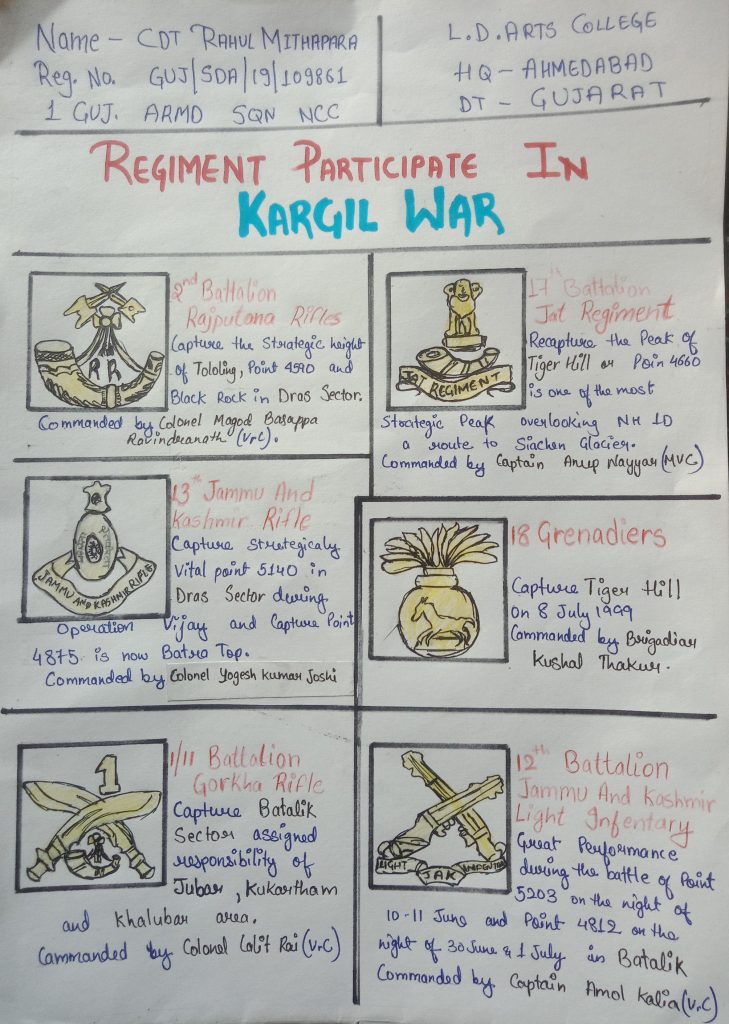 Name - CDT RAHUL MITHAPARA
Reg. No. GUJ/SDA/19/109861
1 GUJ. ARMD SQN NCC
L.D. ARTS COLLEGE
HQ - AHMEDABAD
DT - GUJARAT
REGIMENT PARTICIPATE IN
KARGIL WAR
RR
2nd Battalion
Rajputana Rifles
Capture the Strategic height
of Tololing, Point 4590 and
Black Rock in Dras Sector.
Commanded by Colonel Magod Basappa
Ravindranath (Vrc).
JAT REGIMENT
17th Battalion
Jat Regiment
Recapture the Peak of
Tiger Hill or Poin 4660
is one of the most
Stratigic Peak overlooking NH 1D
a route to Siachen Glacier.
Commanded by Captain Anup Nayyar (MVC)
JAMMU AND KASHMIR RIFLE
13th Jammu And
Kashmir Rifle
Capture Strategicaly
Vital point 5140 in
Dras Sector during
Operation Vijay and Capture Point
4875 is now Batra Top.
Commanded by Colonel Yogesh Kumar Joshi
18 Grenadiers
Capture Tiger Hill
on 8 July 1999
Commanded by Brigadiar
Kushal Thakur.
1
1/11 Battalion
Gorkha Rifle
Capture Batalik
Sector assigned
responsibility of
Jubar, Kukartham
and Khalubar area.
Cammanded by Colonel Lalit Rai (Vrc)
LIGHT JAK
12th Battalion
Jammu And Kashmir
Light Infentary
Great Performance
during the battle of Point
5203 on the night of
10-11 June and Point 4812 on the
night of 30 June & 1 July in Batalik
Commanded by Captain Amol Kalia (Vrc)